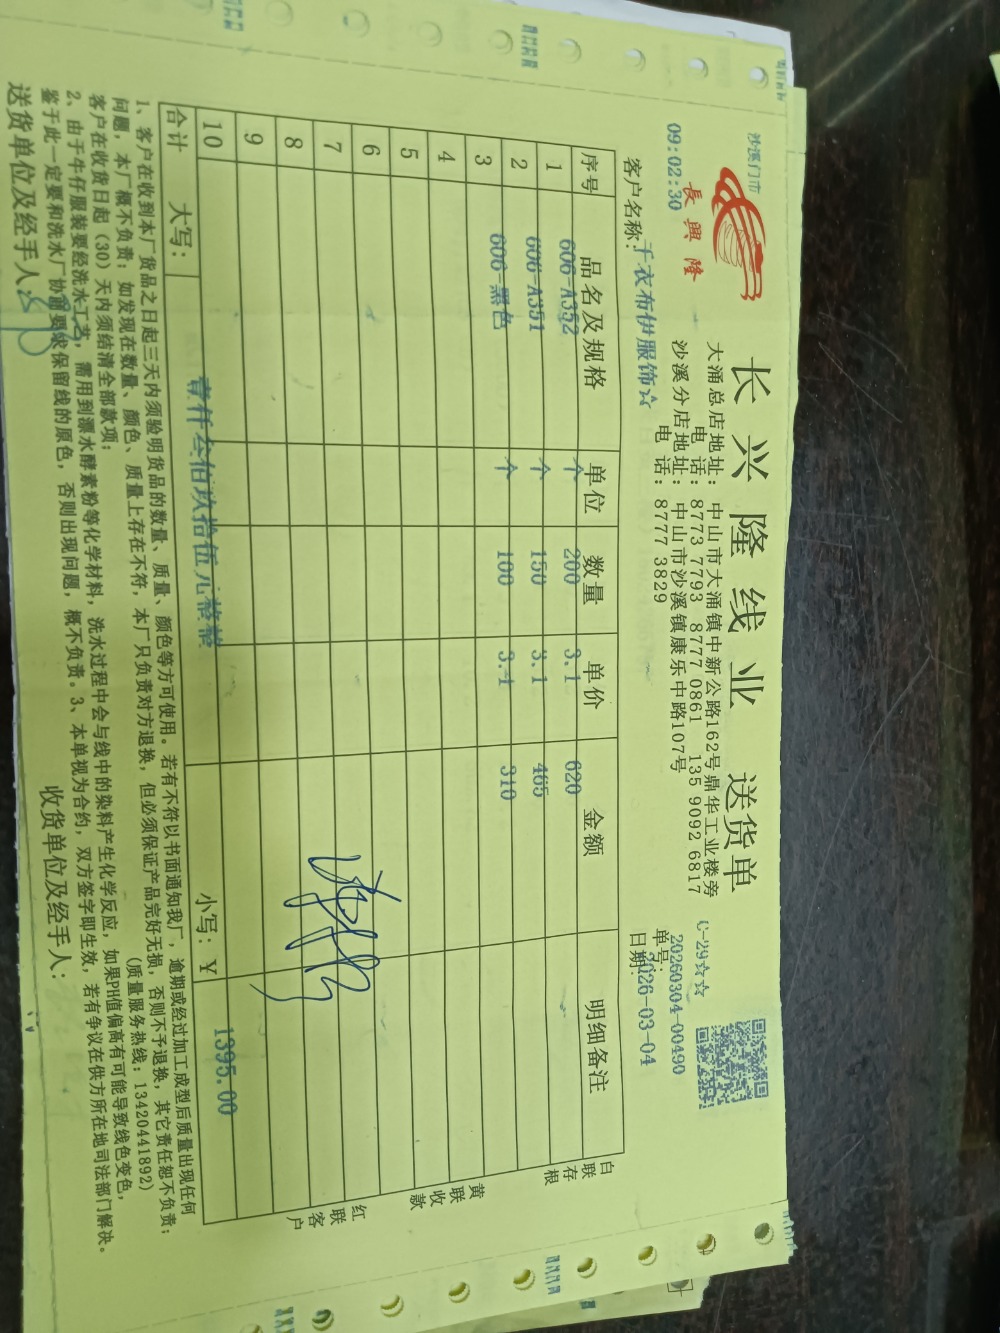 沙溪门市
長興隆
09:02:30
长兴隆线业 送货单
大涌总店地址: 中山市大涌镇中新公路162号鼎华工业楼旁
电话: 8773 7793 8777 0861 135 9092 6817
沙溪分店地址: 中山市沙溪镇康乐中路107号
电话: 8777 3829
C-29☆☆
单号: 20260304-00490
日期: 2026-03-04
客户名称: 千衣布伊服饰☆
序号 品名及规格 单位 数量 单价 金额 明细备注
1 606-A352 个 200 3.1 620
2 606-A351 个 150 3.1 465
3 606-黑色 个 100 3.1 310
4
5
6
7
8
9
10
合计 大写: 壹仟叁佰玖拾伍元整 小写: ¥ 1395.00
白联存根
黄联收款
红联客户
1、客户在收到本厂货品之日起三天内须验明货品的数量、质量、颜色等方可使用。若有不符以书面通知我厂，逾期或经过加工成型后质量出现任何
问题，本厂概不负责；如发现在数量、颜色、质量上存在不符，本厂只负责对方退换，但必须保证产品完好无损，否则不予退换，其它责任恕不负责；
客户在收货日起（30）天内须结清全部款项； (质量服务热线: 13420441892)
2、由于牛仔服装要经洗水工艺，需用到漂水酵素粉等化学材料，洗水过程中会与线中的染料产生化学反应，如果PH值偏高有可能导致线色变色，
鉴于此一定要和洗水厂协调要求保留线的原色，否则出现问题，概不负责。3、本单视为合约，双方签字即生效，若有争议在供方所在地司法部门解决。
送货单位及经手人: 收货单位及经手人: